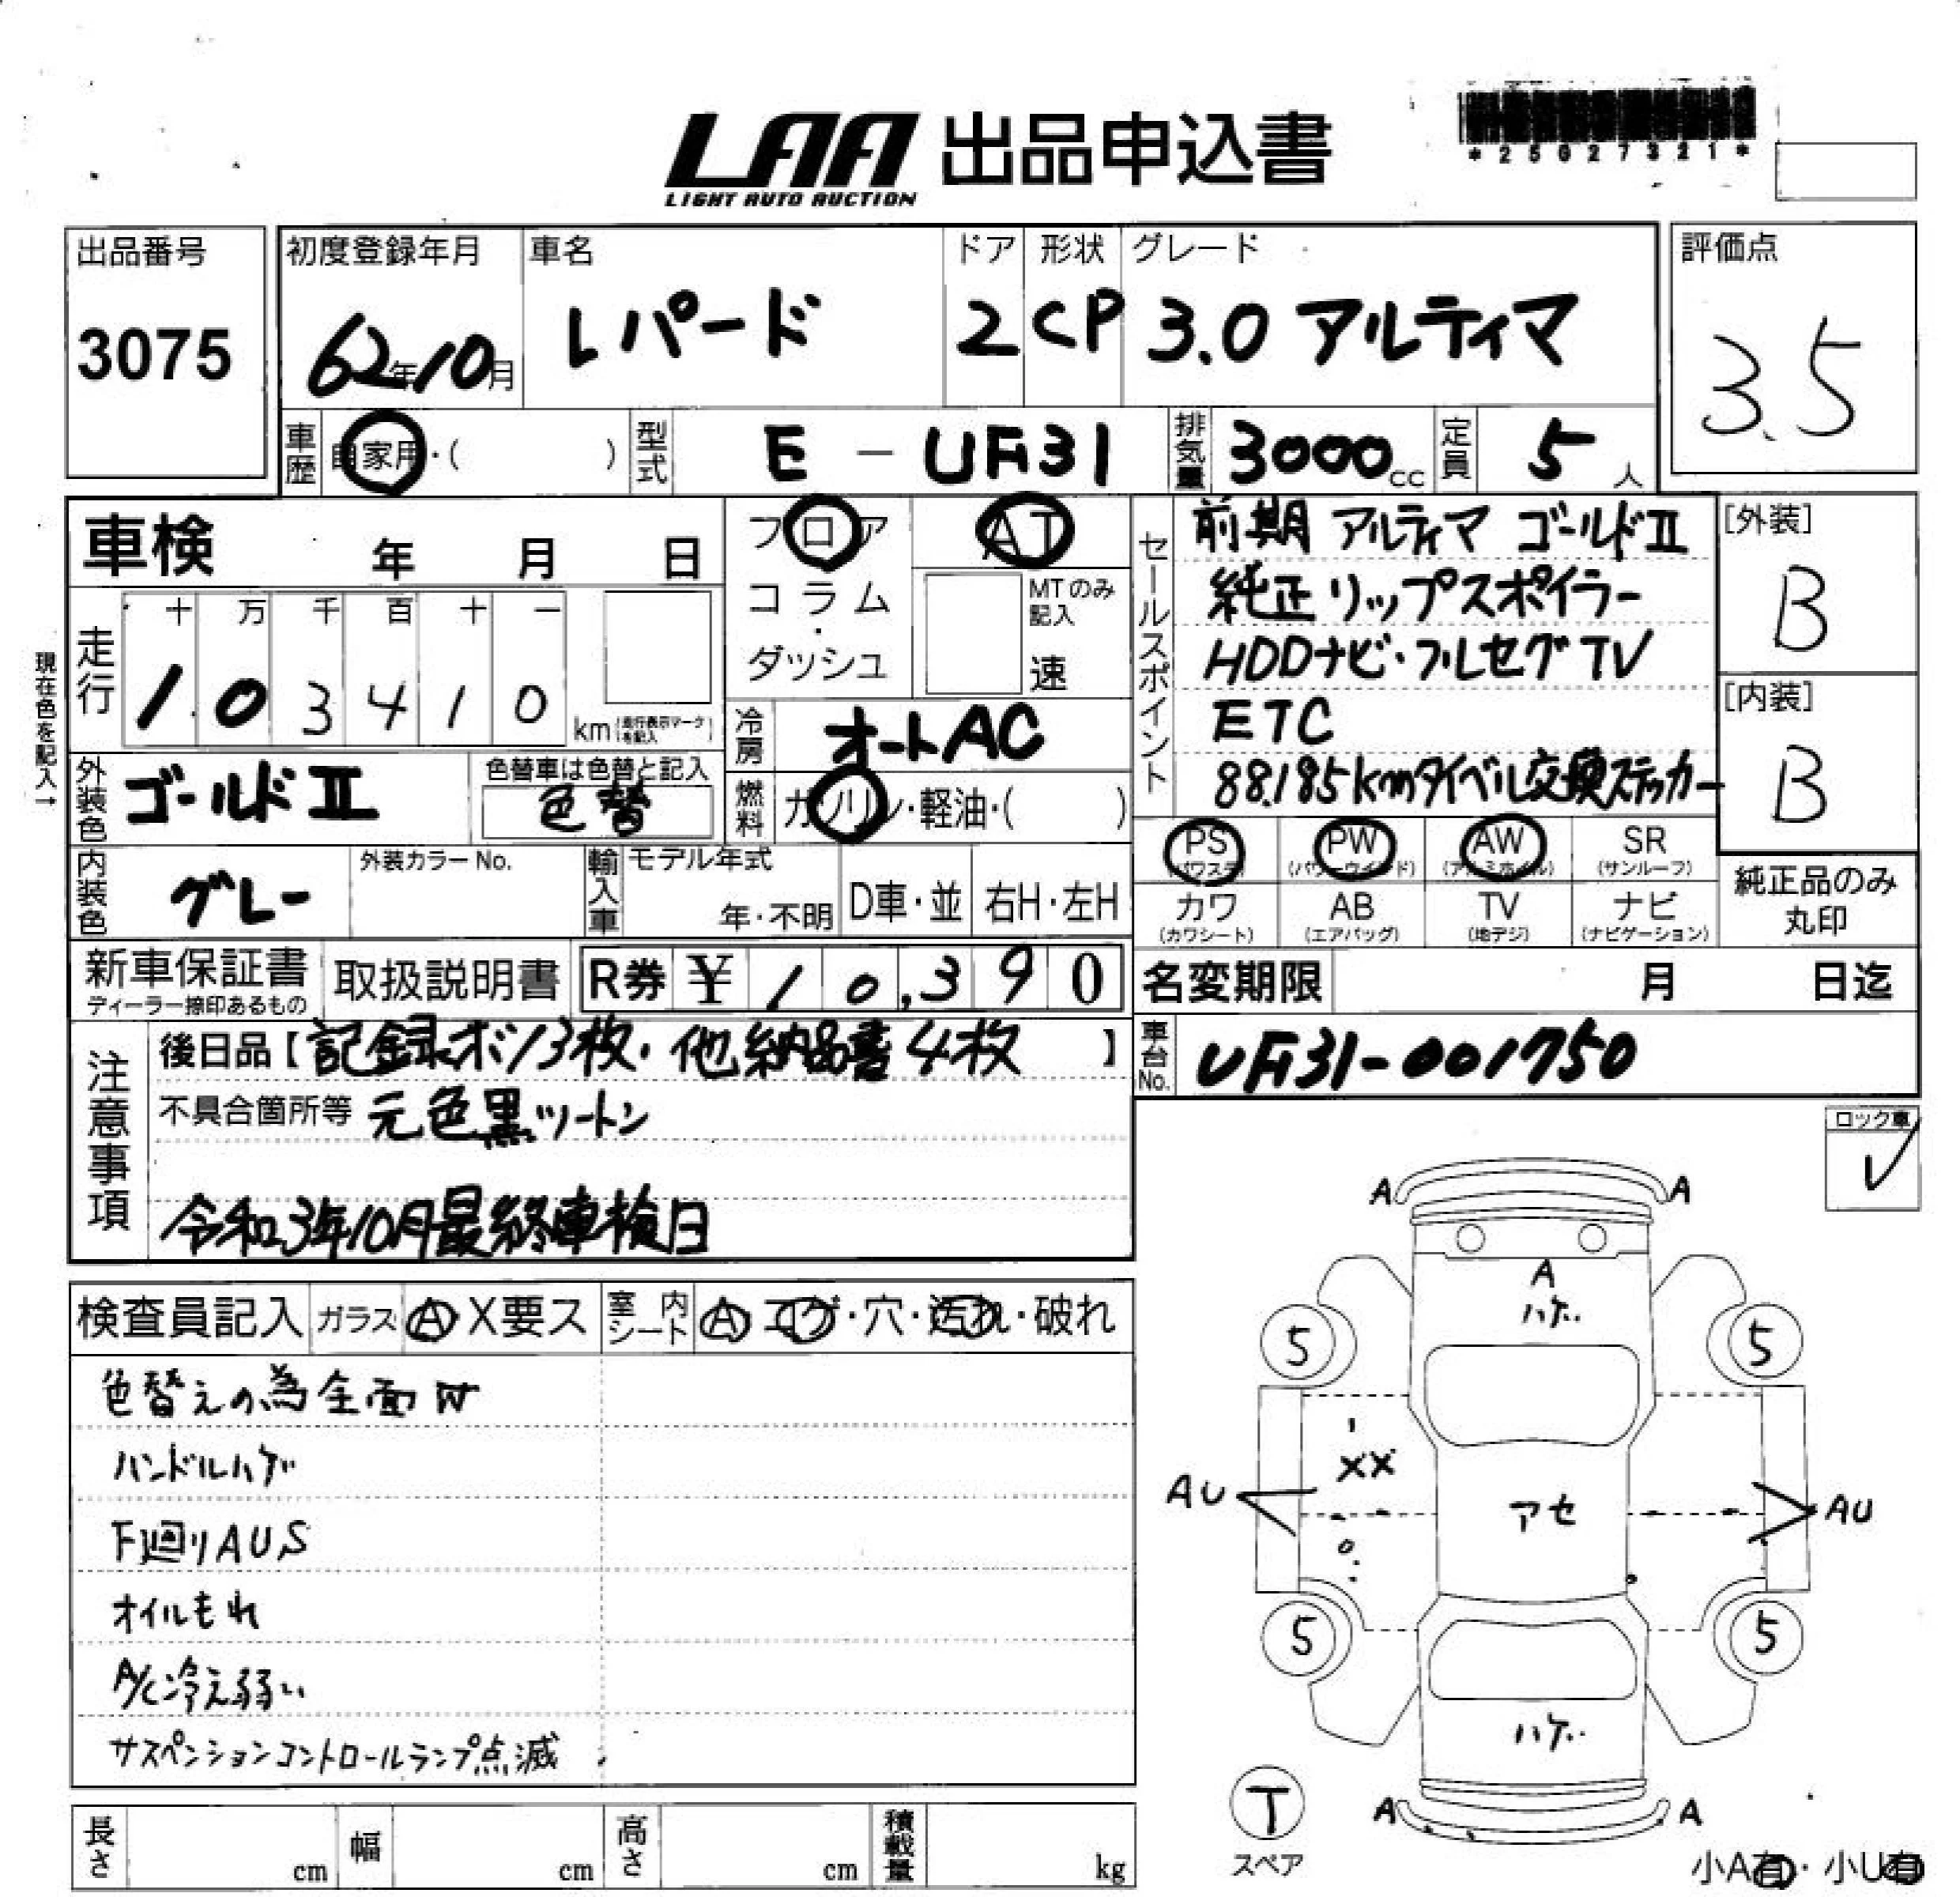 LAA 出品申込書
LIGHT AUTO AUCTION
*25027321*
出品番号 初度登録年月 車名 ドア 形状 グレード 評価点
3075 62年10月 レパード 2 CP 3.0 アルティマ 3.5
車歴 自家用・( ) 型式 E-UF31 排気量 3000cc 定員 5人
車検 年 月 日
フロア AT
コラム・ダッシュ
MTのみ記入
速
走行 十 万 千 百 十 一
1 0 3 4 1 0 km (走行表示マークを記入)
現在色を記入→
冷房 オートAC
外装色 ゴールドⅡ 色替車は色替と記入
色替
燃料 ガソリン・軽油・( )
内装色 グレー 外装カラーNo.
輸入車 モデル年式 年・不明 D車・並 右H・左H
セールスポイント
前期 アルティマ ゴールドⅡ
純正リップスポイラー
HDDナビ・フルセグTV
ETC
88.185kmタイベル交換ステッカー
[外装]
B
[内装]
B
PS (パワステ) PW (パワーウインド) AW (アルミホイル) SR (サンルーフ)
カワ (カワシート) AB (エアバッグ) TV (地デジ) ナビ (ナビゲーション)
純正品のみ
丸印
新車保証書 取扱説明書 R券 ¥10,390
ディーラー捺印あるもの
名変期限 月 日迄
車台No. UF31-001750
注意事項
後日品【記録ボ/3枚・他納品書4枚 】
不具合箇所等 元色黒ツートン
令和3年10月最終車検日
ロック車
検査員記入 ガラス A X要ス 室内シート A コゲ・穴・汚れ・破れ
色替えの為全面W
ハンドルハゲ
下廻りAUS
オイルもれ
A/C冷え弱い
サスペンションコントロールランプ点滅
A A
A
ハゲ
5 5
XX
AU アセ AU
5 5
ハゲ
T
スペア
A A
小A有・小U有
長さ cm 幅 cm 高さ cm 積載量 kg